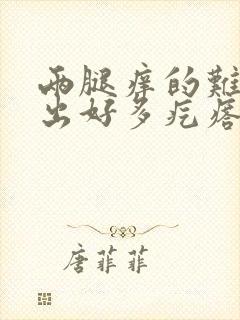 两腿痒的难
出好多疙瘩
唐菲菲